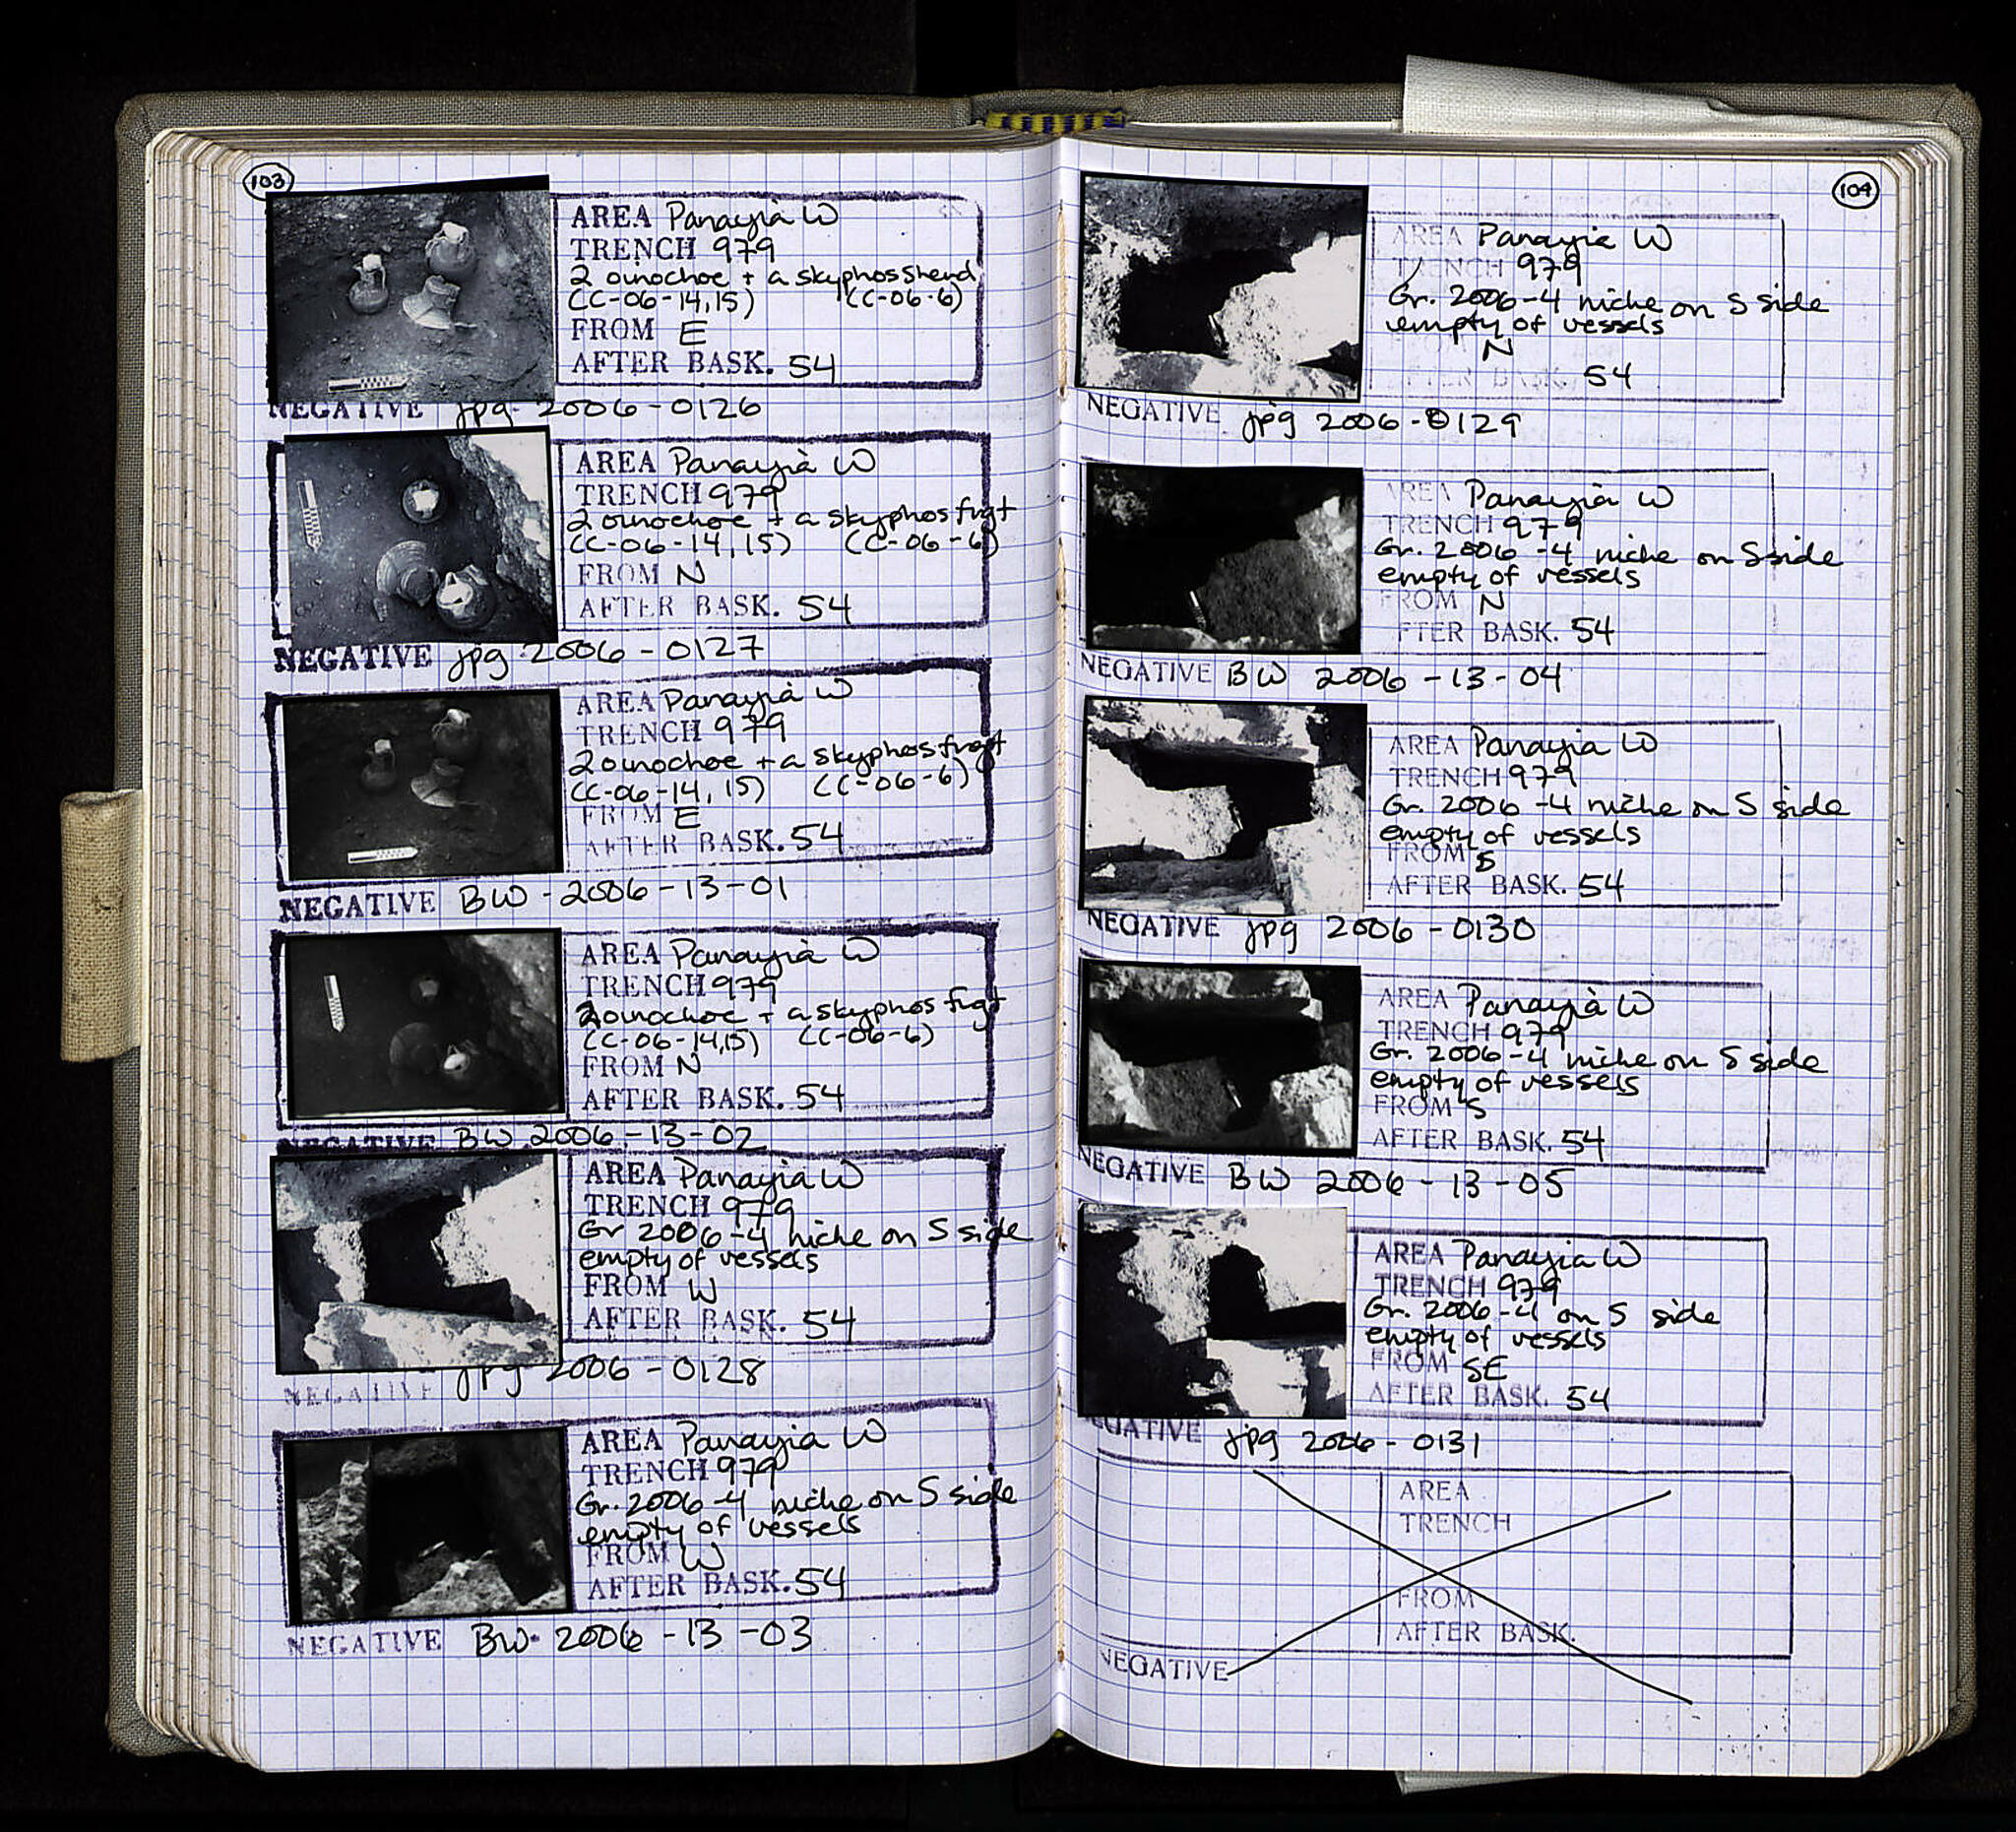 103
AREA Panayià W
TRENCH 979
2 oinochoe + a skyphos sherd
(CC-06-14,15) (CC-06-6)
FROM E
AFTER BASK. 54
NEGATIVE jpg 2006-0126
AREA Panayià W
TRENCH 979
2 oinochoe + a skyphos frgt
(CC-06-14,15) (CC-06-6)
FROM N
AFTER BASK. 54
NEGATIVE jpg 2006-0127
AREA Panayià W
TRENCH 979
2 oinochoe + a skyphos frgt
(CC-06-14,15) (CC-06-6)
FROM E
AFTER BASK. 54
NEGATIVE BW-2006-13-01
AREA Panayià W
TRENCH 979
2 oinochoe + a skyphos frgt
(CC-06-14,15) (CC-06-6)
FROM N
AFTER BASK. 54
NEGATIVE BW 2006-13-02
AREA Panayia W
TRENCH 979
Gr 2006-4 niche on S side
empty of vessels
FROM W
AFTER BASK. 54
NEGATIVE jpg 2006-0128
AREA Panayia W
TRENCH 979
Gr. 2006-4 niche on S side
empty of vessels
FROM W
AFTER BASK. 54
NEGATIVE BW-2006-13-03
104
AREA Panayia W
TRENCH 979
Gr. 2006-4 niche on S side
empty of vessels
FROM N
AFTER BASK. 54
NEGATIVE jpg 2006-0129
AREA Panayia W
TRENCH 979
Gr. 2006-4 niche on S side
empty of vessels
FROM N
AFTER BASK. 54
NEGATIVE BW 2006-13-04
AREA Panayia W
TRENCH 979
Gr. 2006-4 niche on S side
empty of vessels
FROM S
AFTER BASK. 54
NEGATIVE jpg 2006-0130
AREA Panayià W
TRENCH 979
Gr. 2006-4 niche on S side
empty of vessels
FROM S
AFTER BASK. 54
NEGATIVE BW 2006-13-05
AREA Panayia W
TRENCH 979
Gr. 2006-4 on S side
empty of vessels
FROM SE
AFTER BASK. 54
NEGATIVE jpg 2006-0131
AREA
TRENCH
FROM
AFTER BASK.
NEGATIVE